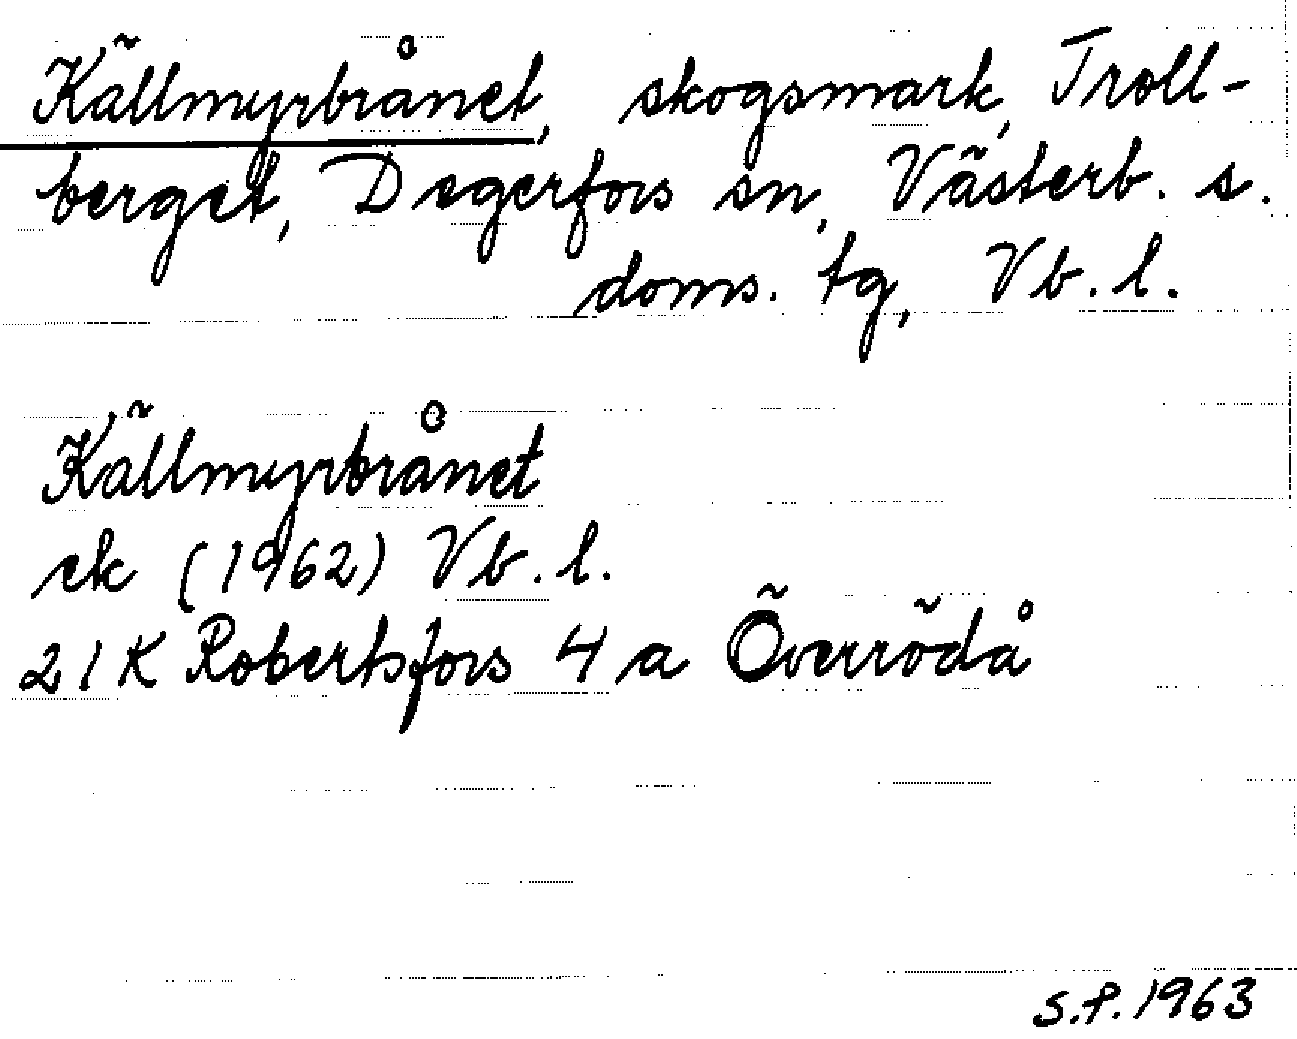 Källmyrbrånet, skogsmark, Troll-
berget, Degerfors sn, Västerb. s.
doms. tg, Vb. l.
Källmyrbrånet
ek (1962) Vb. l.
21K Robertsfors 4 a Överrödå
S.P. 1963